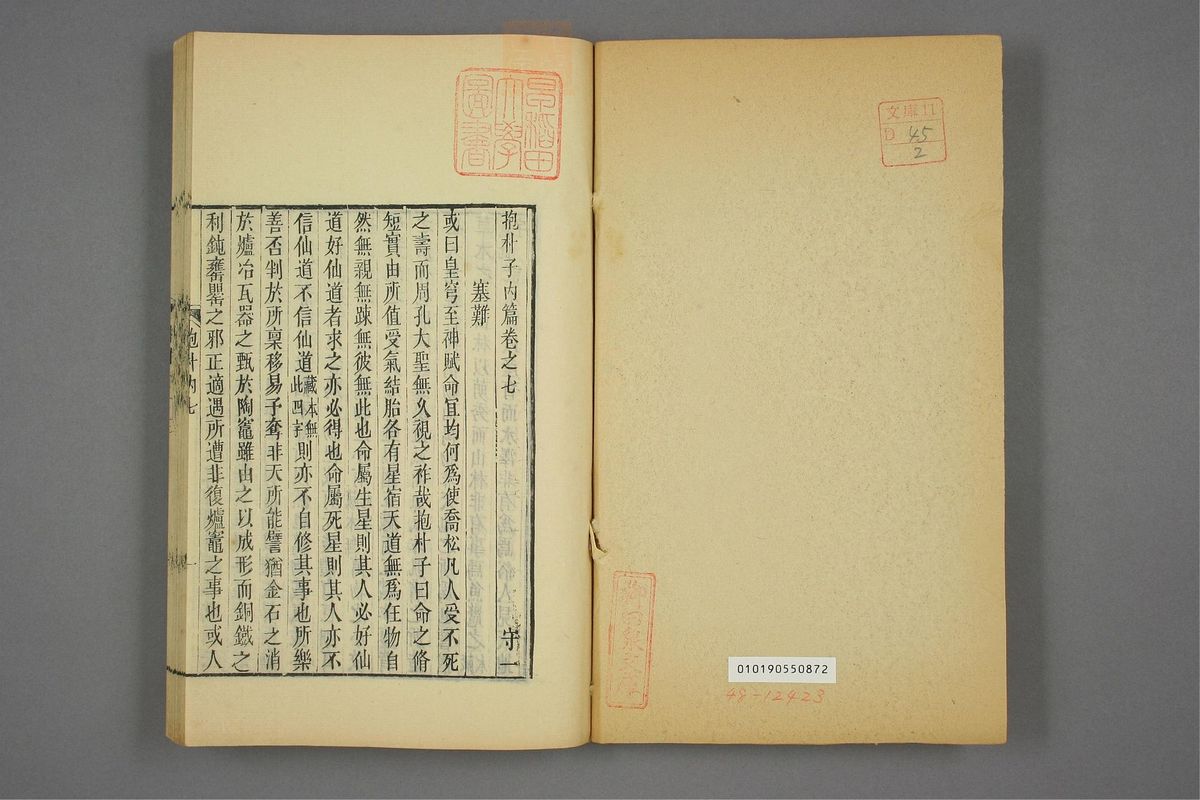 文庫11
D 45
2
010190550872
48-12423
早稲田
大學
圖書
抱朴子内篇卷之七 守一
塞難
或曰皇穹至神賦命宜均何爲使喬松凡人受不死
之壽而周孔大聖無久視之祚哉抱朴子曰命之脩
短實由所值受氣結胎各有星宿天道無爲任物自
然無親無疎無彼無此也命屬生星則其人必好仙
道好仙道者求之亦必得也命屬死星則其人亦不
信仙道不信仙道藏本無此四字則亦不自修其事也所樂
善否判於所稟移易予奪非天所能譬猶金石之消
於爐冶瓦器之甄於陶竈雖由之以成形而銅鐵之
利鈍罋罌之邪正適遇所遭非復爐竈之事也或人
抱朴内七
一